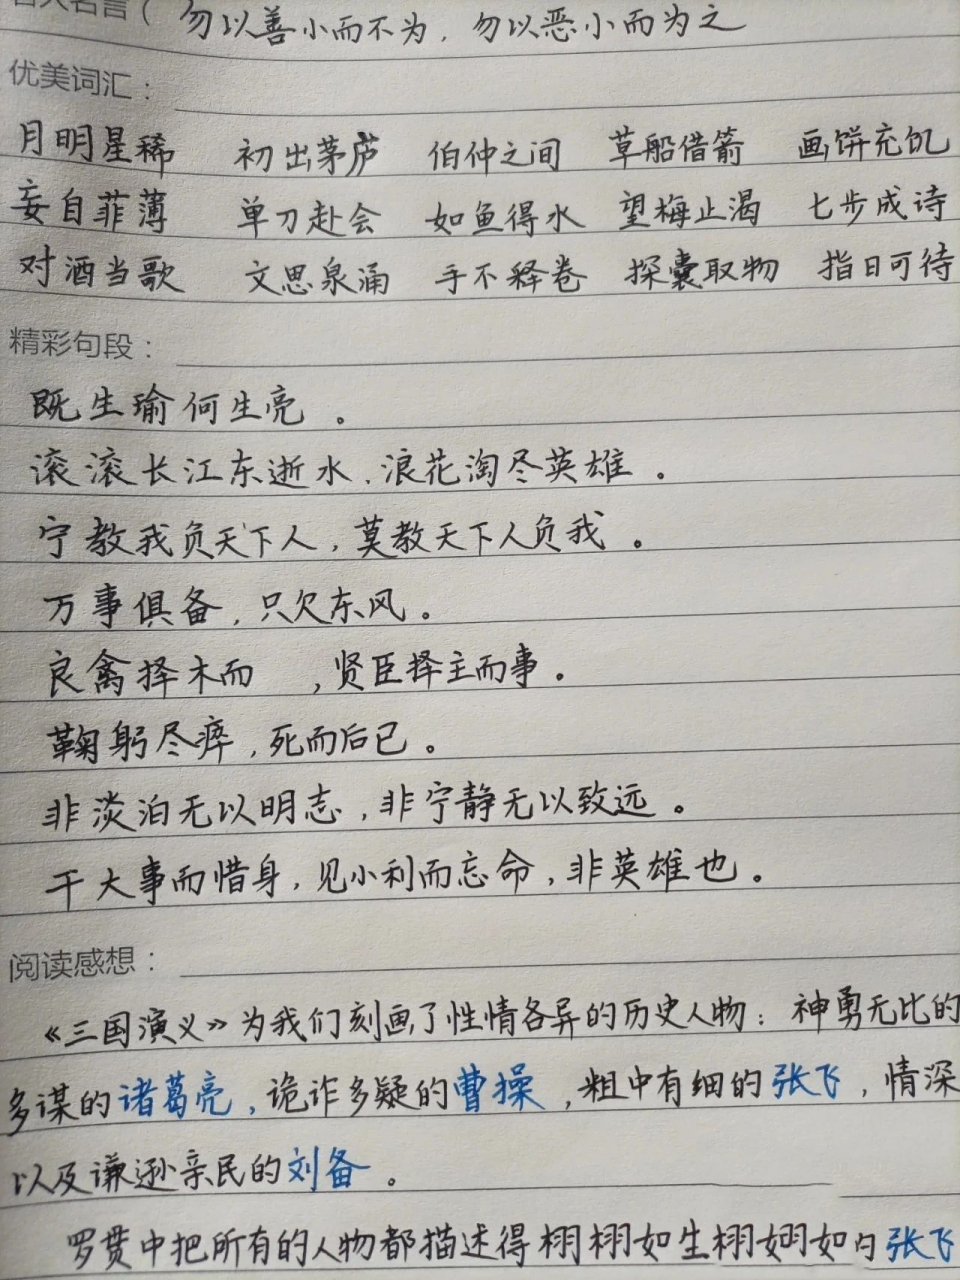 名人名言( 勿以善小而不为,勿以恶小而为之
优美词汇:
月明星稀 初出茅庐 伯仲之间 草船借箭 画饼充饥
妄自菲薄 单刀赴会 如鱼得水 望梅止渴 七步成诗
对酒当歌 文思泉涌 手不释卷 探囊取物 指日可待
精彩句段:
既生瑜何生亮。
滚滚长江东逝水,浪花淘尽英雄。
宁教我负天下人,莫教天下人负我。
万事俱备,只欠东风。
良禽择木而 ,贤臣择主而事。
鞠躬尽瘁,死而后已。
非淡泊无以明志,非宁静无以致远。
干大事而惜身,见小利而忘命,非英雄也。
阅读感想:
《三国演义》为我们刻画了性情各异的历史人物:神勇无比的
多谋的诸葛亮,诡诈多疑的曹操,粗中有细的张飞,情深
以及谦逊亲民的刘备。
罗贯中把所有的人物都描述得栩栩如生栩如 张飞